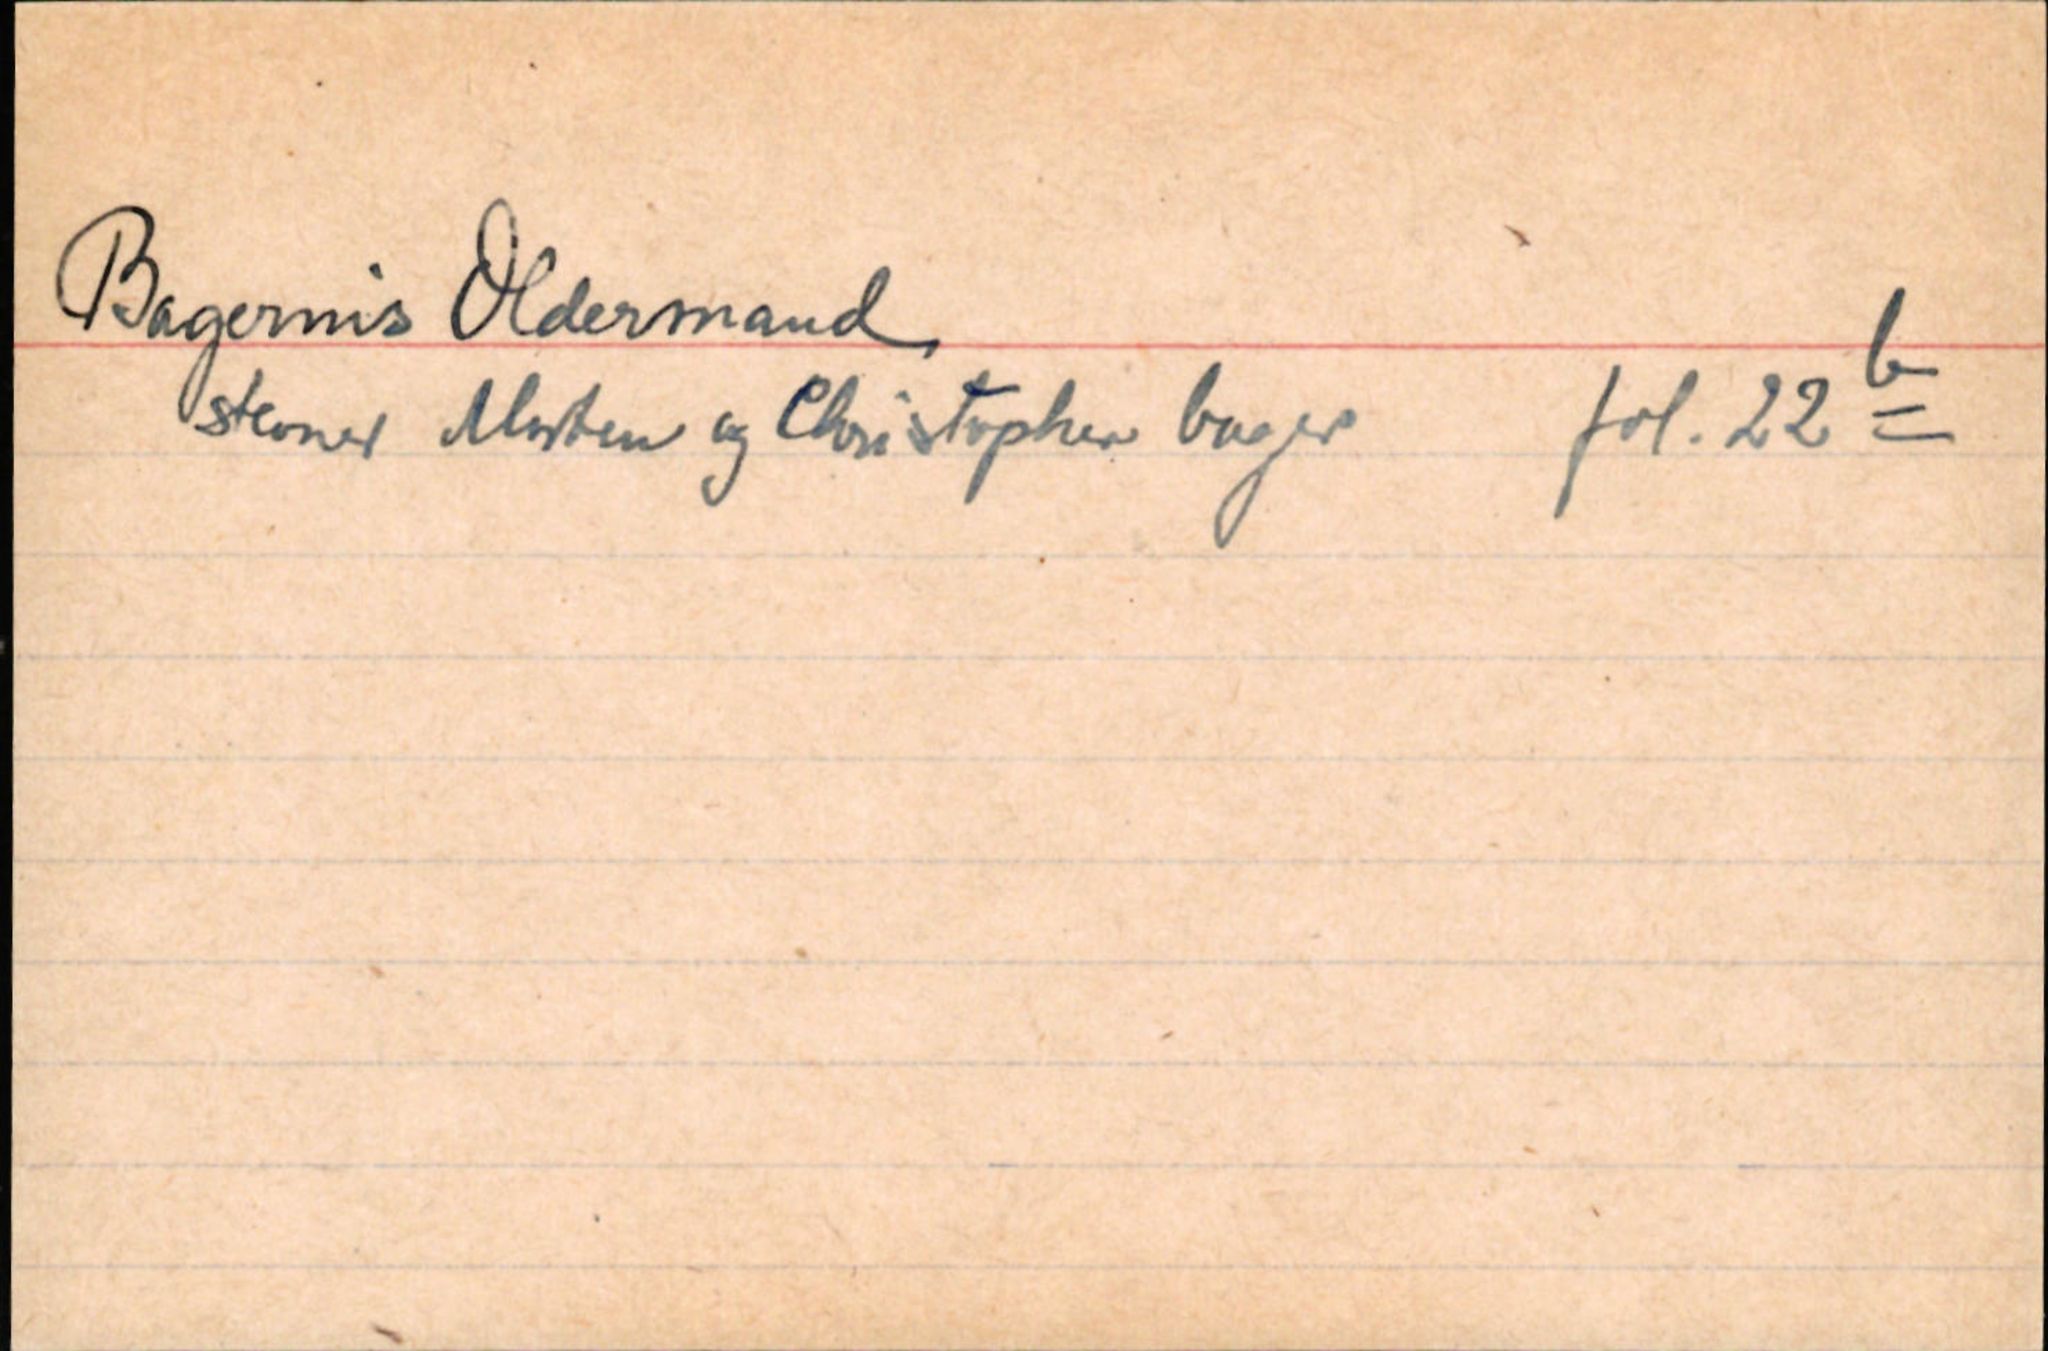 Bagernis Oldermand
stevner Morten og Christopher bager fol. 22 b